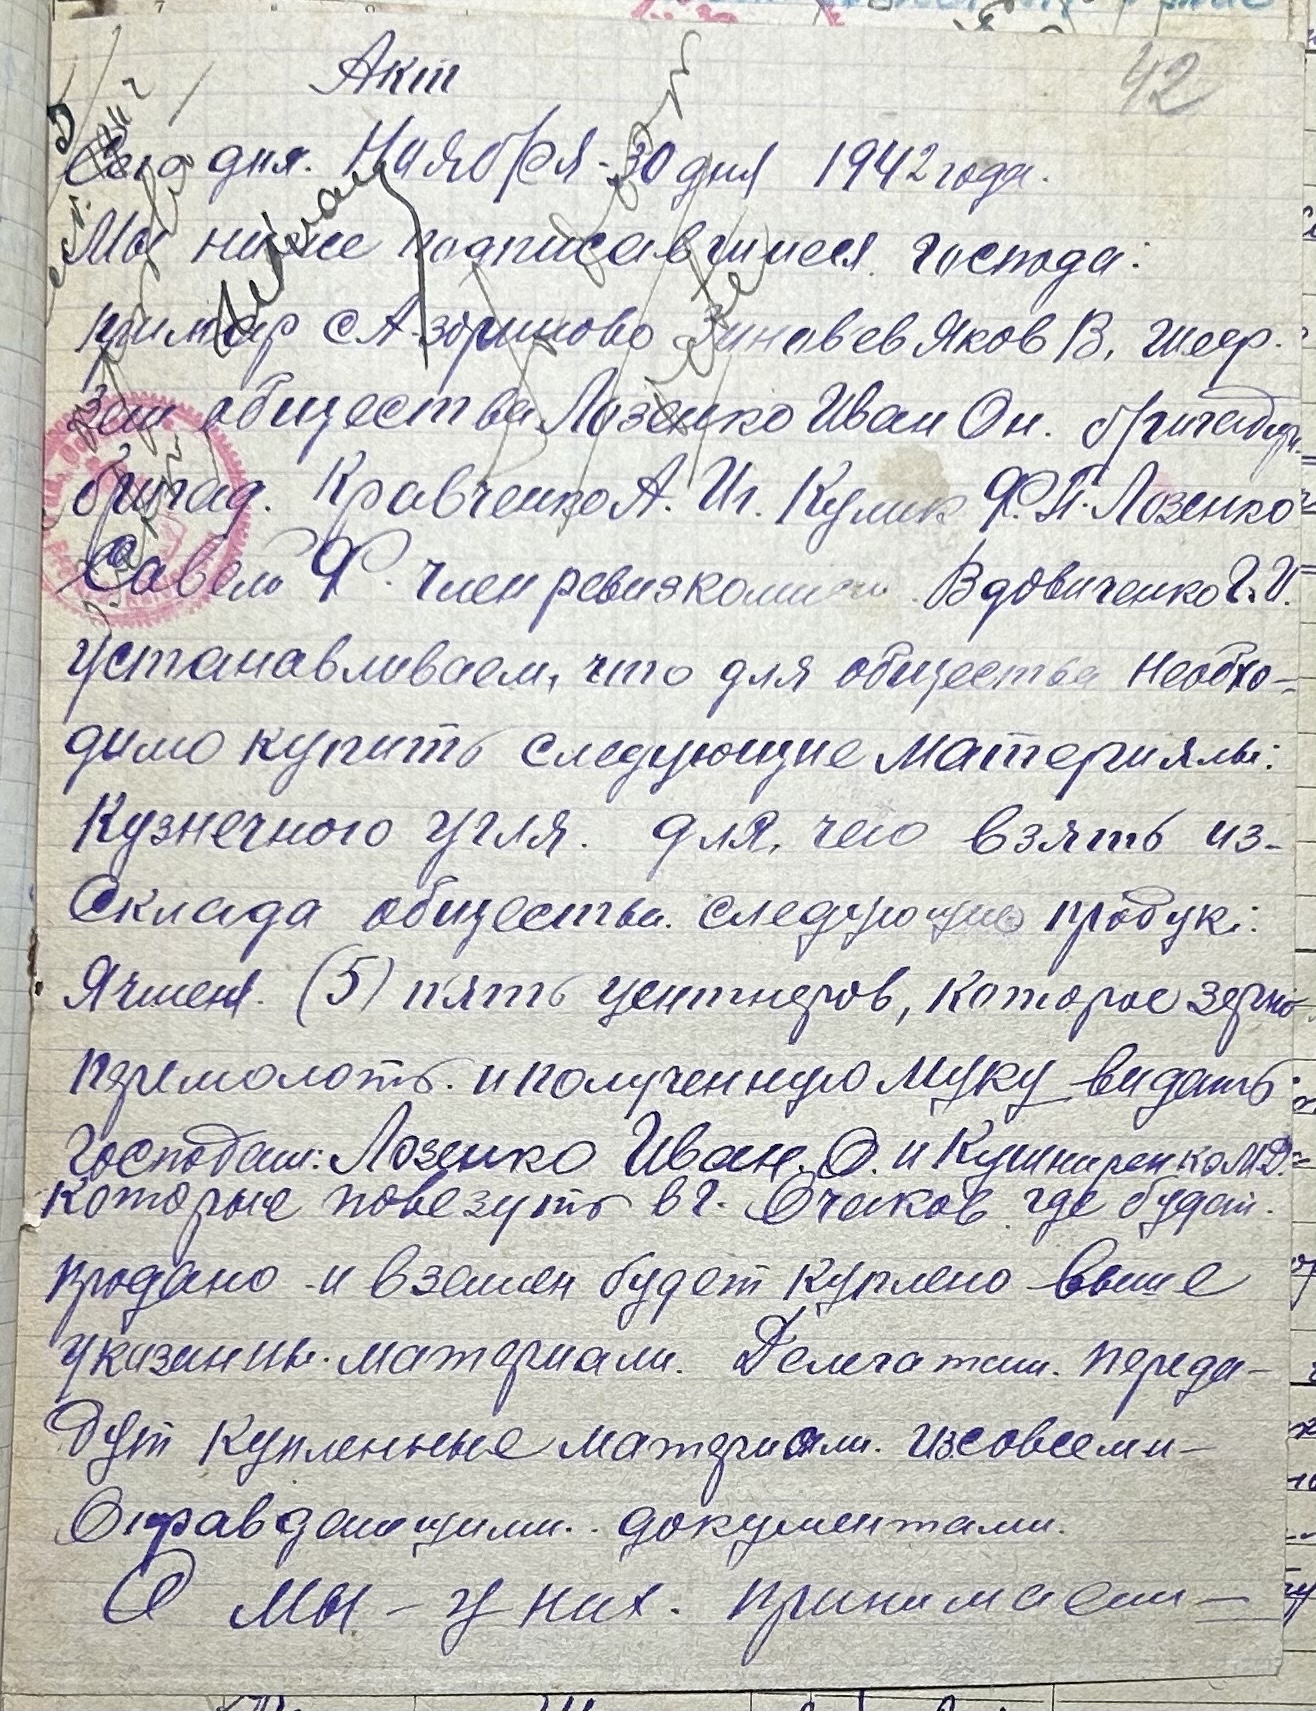 42
Акт
Сего дня. Ноября - 30 дня 1942 года.
Мы ниже подписавшиеся господа:
примар с. Зиновев Яков В, шеф.
общества Лозенко Иван Он. бригадири
бригад. Кравченко А. Иг. Кулик Ф. П. Лозенко
Савель Ф. член ревизкомиси. Вдовиченко Г. И.
устанавливаем, что для общества необхо-
димо купить следующие материялы:
Кузнечного угля. для, чего взять из-
склада общества. следующие продук:
Ячменя. (5) пять центнеров, которое зерно
перемолоть. и полученную муку видать
господам: Лозенко Иван. О. и Кушниренко М.Д.
которые повезуть в г. Очаков где будет.
продано и взамен будет куплено выше
указанны. материали. Делегатам. переда-
дут купленные материали. из совсеми-
Оправдающими. документами.
О мы - у них. принимаем -